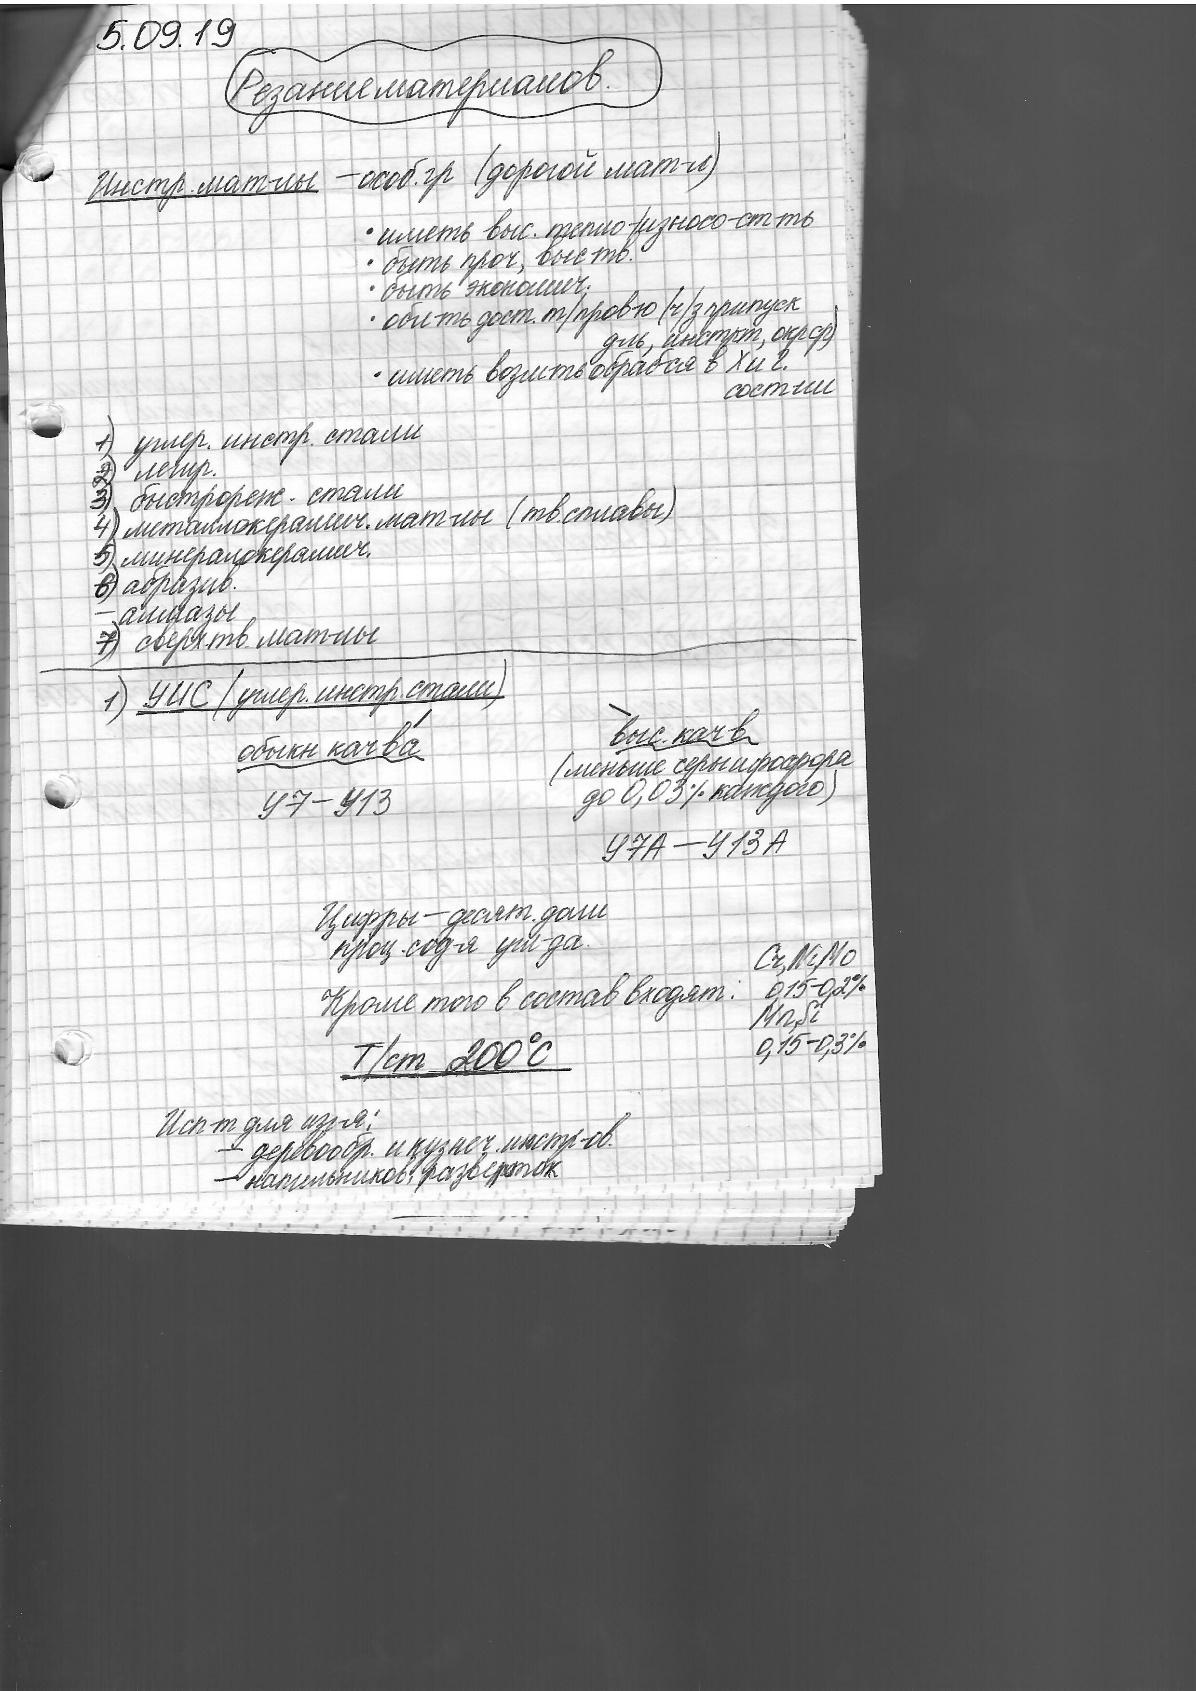 5.09.19
Резание материалов.
Инстр. мат-лы – особ. гр (дорогой мат-л)
• иметь выс. тепло-/износо-ст-ть
• быть проч, выс тв.
• быть экономич.
• обл-ть дост. т/пров-ю (ч/з припуск
дль, инстр-т, окр ср)
• иметь возм-ть обраб-ся в Х и Г.
сост-ии
1) углер. инстр. стали
2) легир.
3) быстрореж. стали
4) металлокерамич. мат-лы (тв. сплавы)
5) минералокерамич.
6) абразив.
– алмазы
7) сверхтв. мат-лы
1) УИС (углер. инстр. стали)
обыкн кач-ва
выс. кач-в.
(меньше серы и фосфора
до 0,03% каждого)
У7 – У13
У7А – У13А
Цифры – десят. доли
проц. сод-я угл-да.
Кроме того в состав входят:
Cr, Ni, Mo
0,15-0,2%
Mn, Si
0,15-0,3%
Т/ст 200°С
Исп-т для изг-я:
– деревообр. и кузнеч. инстр-ов.
– напильников, разверток